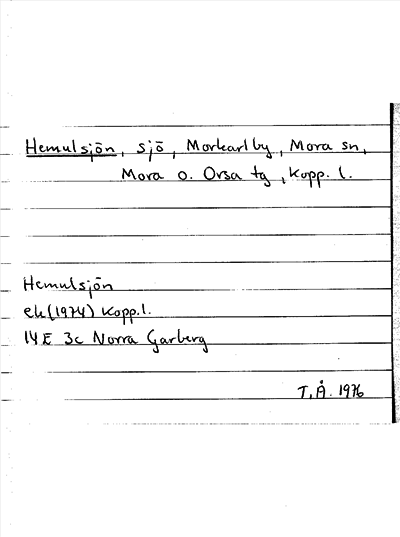 Hemulsjön, sjö, Morkarlby, Mora sn,
Mora o. Orsa tg, Kopp. l.
Hemulsjön
ek (1974) Kopp.l.
14E 3c Norra Garberg
T.Å. 1976